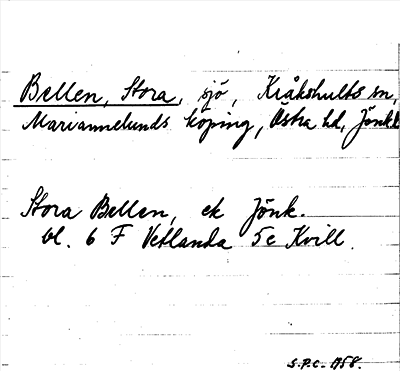 Bellen, Stora, sjö, Kråkshults sn,
Mariannelunds köping, Östra hd, Jönk.
Stora Bellen, ek Jönk.
bl. 6 F Vetlanda 5e Kvill.
S.P.C. 1958.